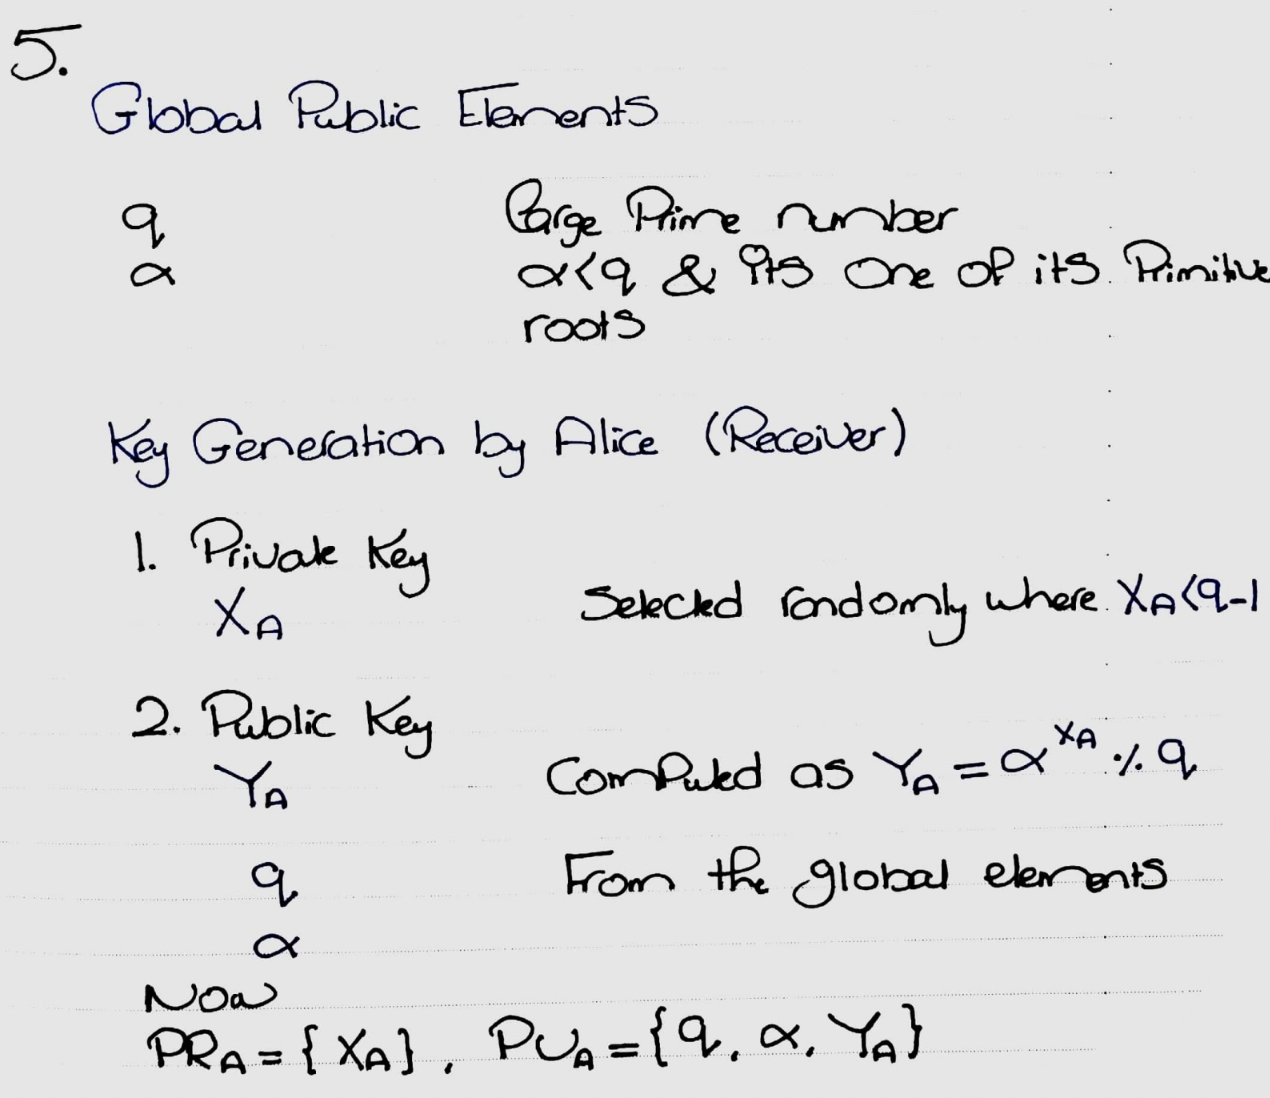 5.
Global Public Elements
q Large Prime number
α α<q & its one of its Primitive
roots
Key Generation by Alice (Receiver)
1. Private Key
XA Selected randomly where XA<q-1
2. Public Key
YA Computed as YA = α^XA % q
q From the global elements
α
Now
PRA = { XA }, PUA = {q, α, YA}